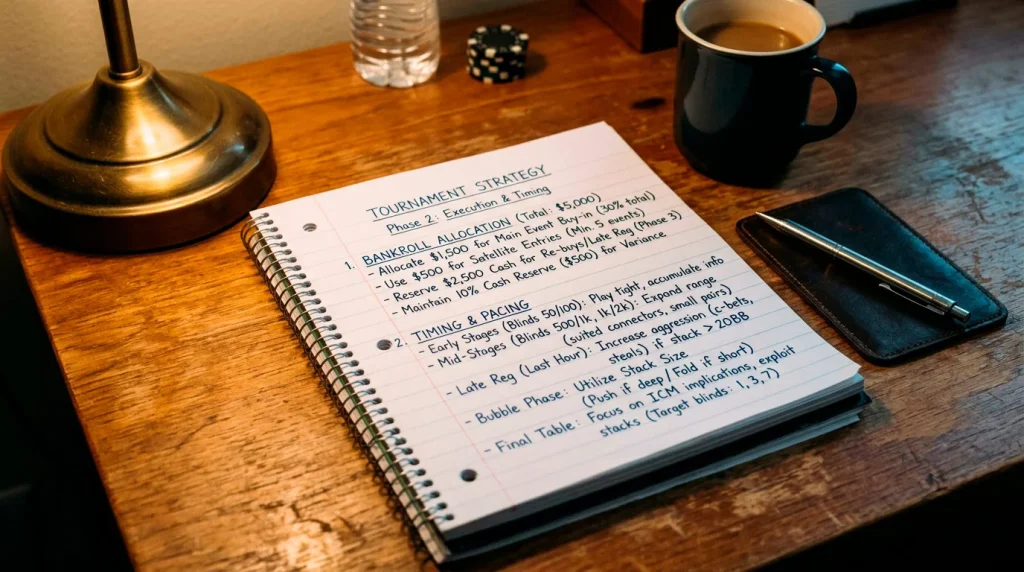 TOURNAMENT STRATEGY
Phase 2: Execution & Timing
1. BANKROLL ALLOCATION (Total: $5,000)
- Allocate $1,500 for Main Event Buy-in (30% total)
- Use $500 for Satellite Entries (Min. 5 events)
- Reserve $2,500 Cash for Re-buys/Late Reg (Phase 3)
- Maintain 10% Cash Reserve ($500) for Variance
2. TIMING & PACING
- Early Stages (Blinds 50/100): Play tight, accumulate info
- Mid-Stages (Blinds 500/1k, 1k/2k): Expand range
(suited connectors, small pairs)
- Late Reg (Last Hour): Increase aggression (c-bets,
steals) if stack > 20BB
- Bubble Phase: Utilize Stack Size
(Push if deep / Fold if short)
- Final Table: Focus on ICM implications, exploit
stacks (Target blinds: 1, 3, 7)